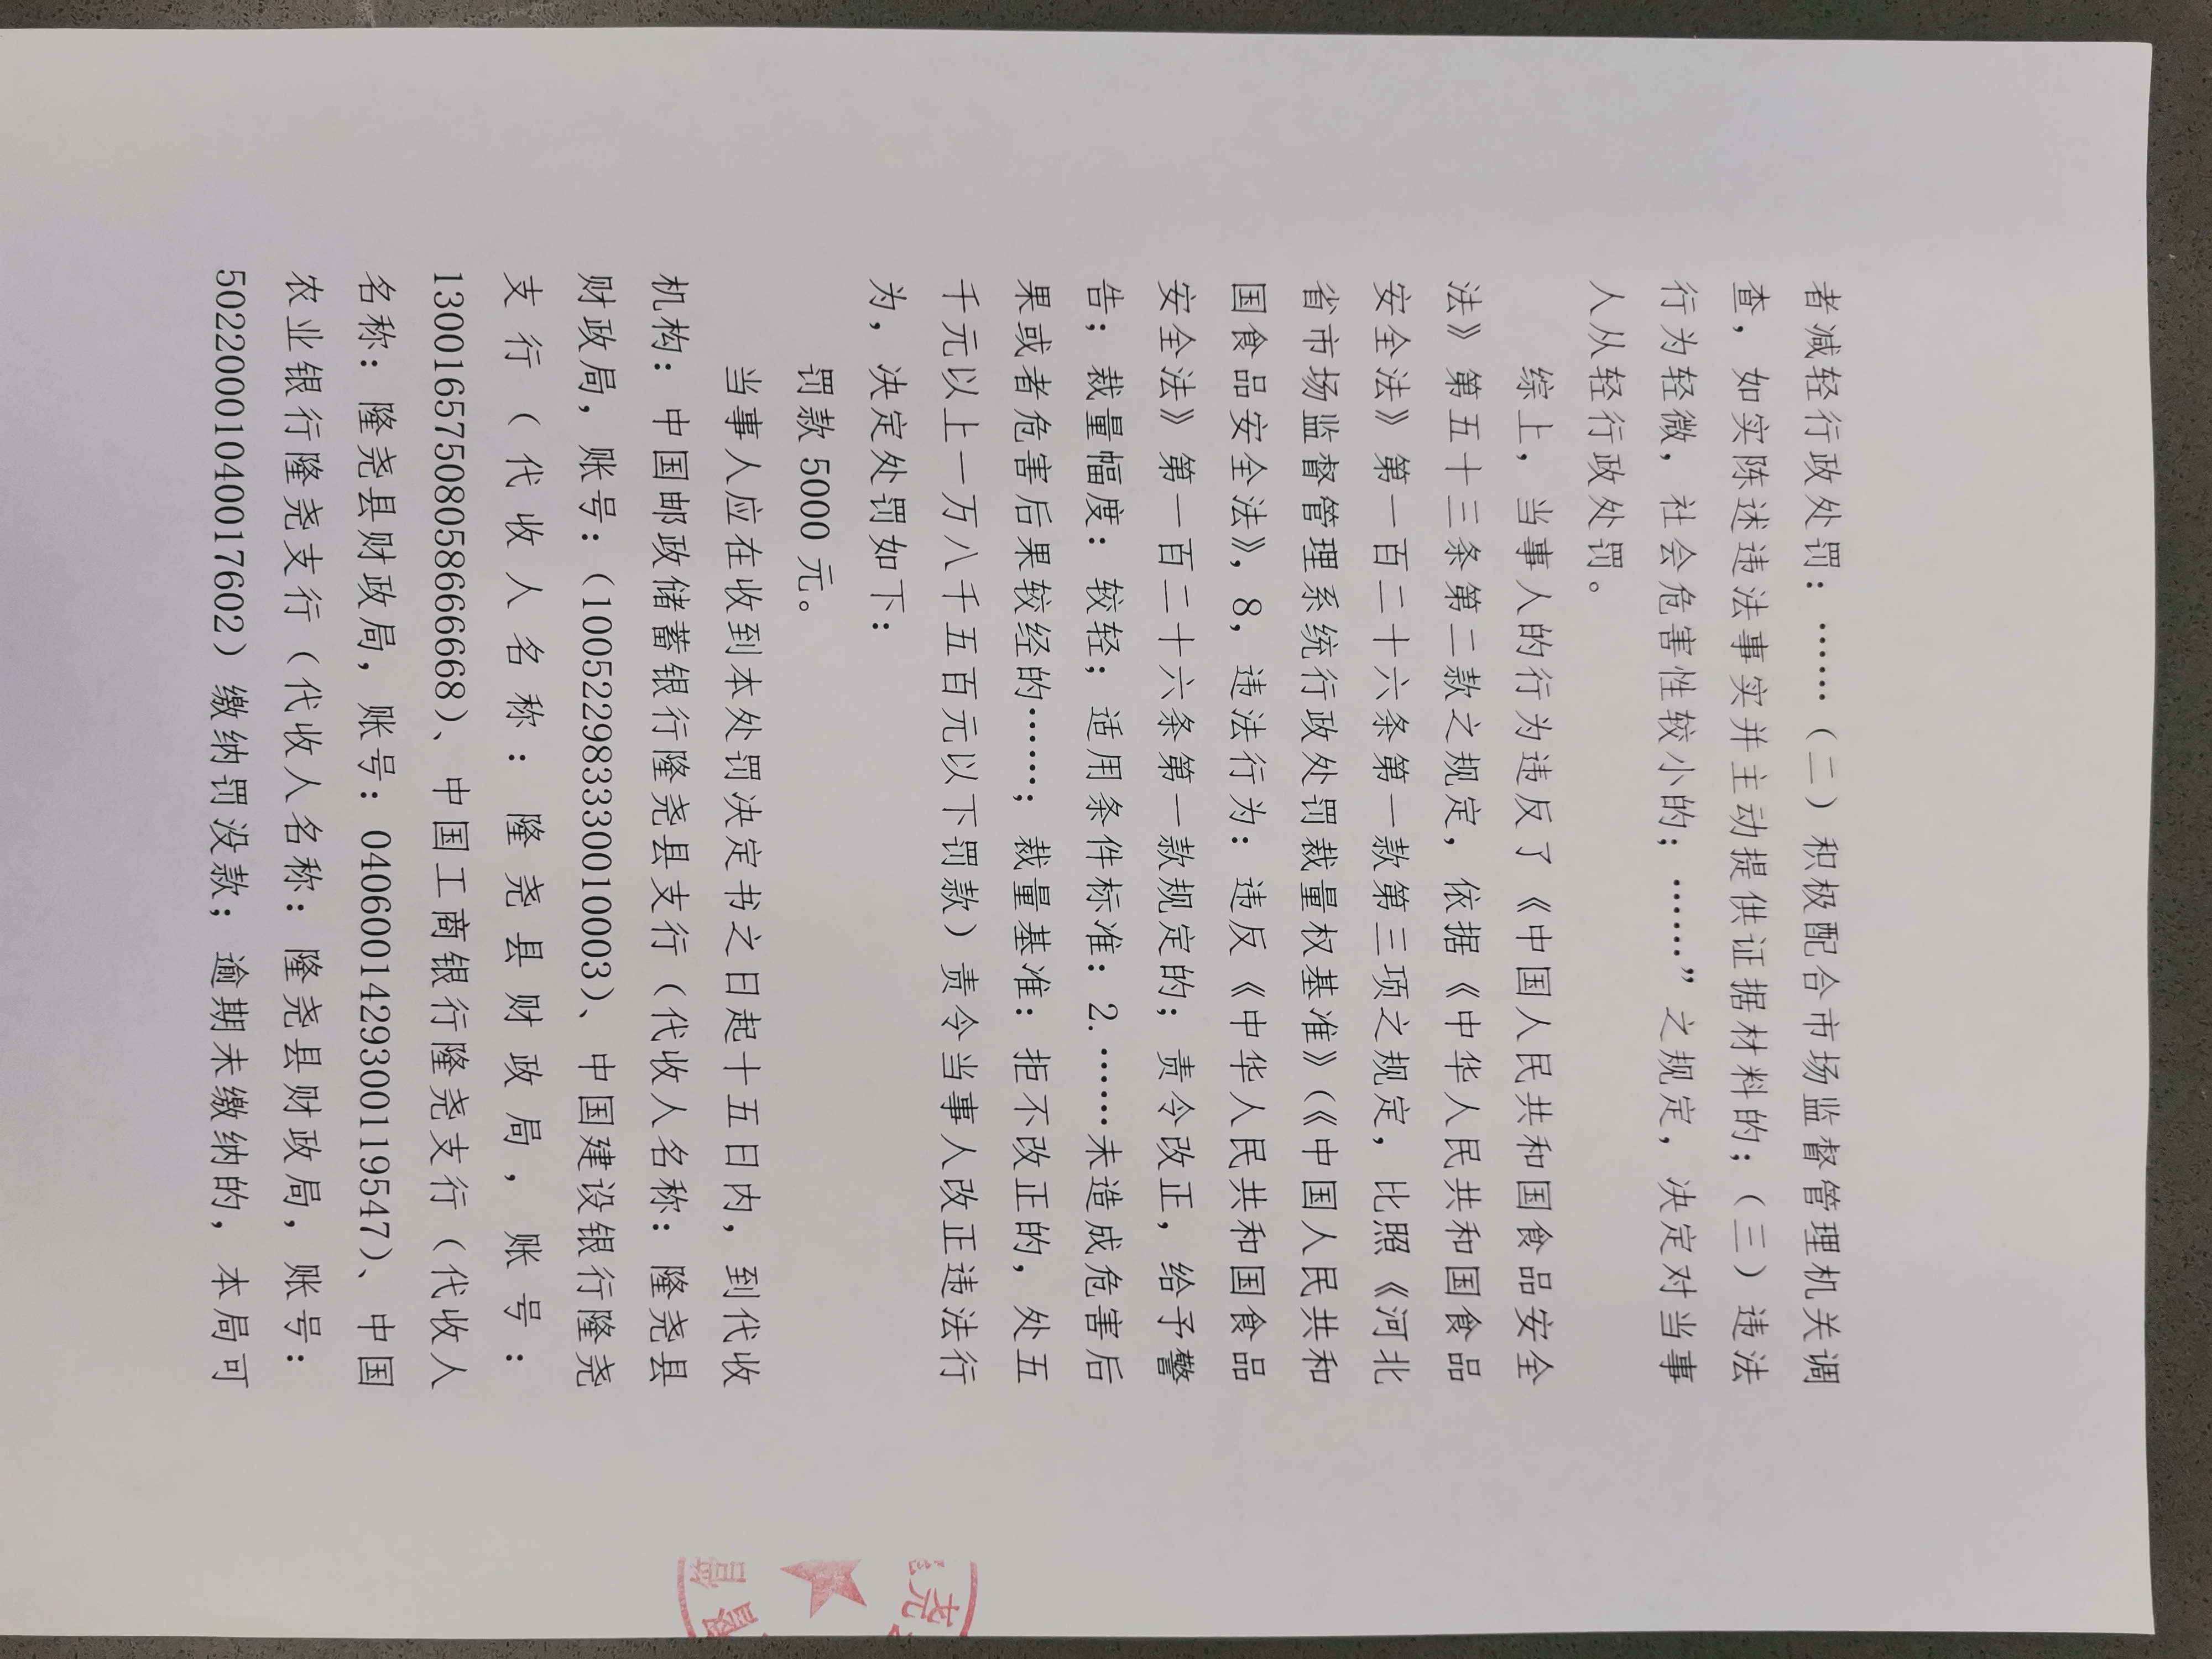 者减轻行政处罚：……（二）积极配合市场监督管理机关调
查，如实陈述违法事实并主动提供证据材料的；（三）违法
行为轻微，社会危害性较小的；……”之规定，决定对当事
人从轻行政处罚。
综上，当事人的行为违反了《中国人民共和国食品安全
法》第五十三条第二款之规定，依据《中华人民共和国食品
安全法》第一百二十六条第一款第三项之规定，比照《河北
省市场监督管理系统行政处罚裁量权基准》（《中国人民共和
国食品安全法》，8，违法行为：违反《中华人民共和国食品
安全法》第一百二十六条第一款规定的；责令改正，给予警
告；裁量幅度：较轻；适用条件标准：2.……未造成危害后
果或者危害后果较经的……；裁量基准：拒不改正的，处五
千元以上一万八千五百元以下罚款）责令当事人改正违法行
为，决定处罚如下：
罚款 5000 元。
当事人应在收到本处罚决定书之日起十五日内，到代收
机构：中国邮政储蓄银行隆尧县支行（代收人名称：隆尧县
财政局，账号：（100522983330010003）、中国建设银行隆尧
支行（代收人名称：隆尧县财政局，账号：
13001657508058666668）、中国工商银行隆尧支行（代收人
名称：隆尧县财政局，账号：0406001429300119547）、中国
农业银行隆尧支行（代收人名称：隆尧县财政局，账号：
50220001040017602）缴纳罚没款；逾期未缴纳的，本局可
尧
督